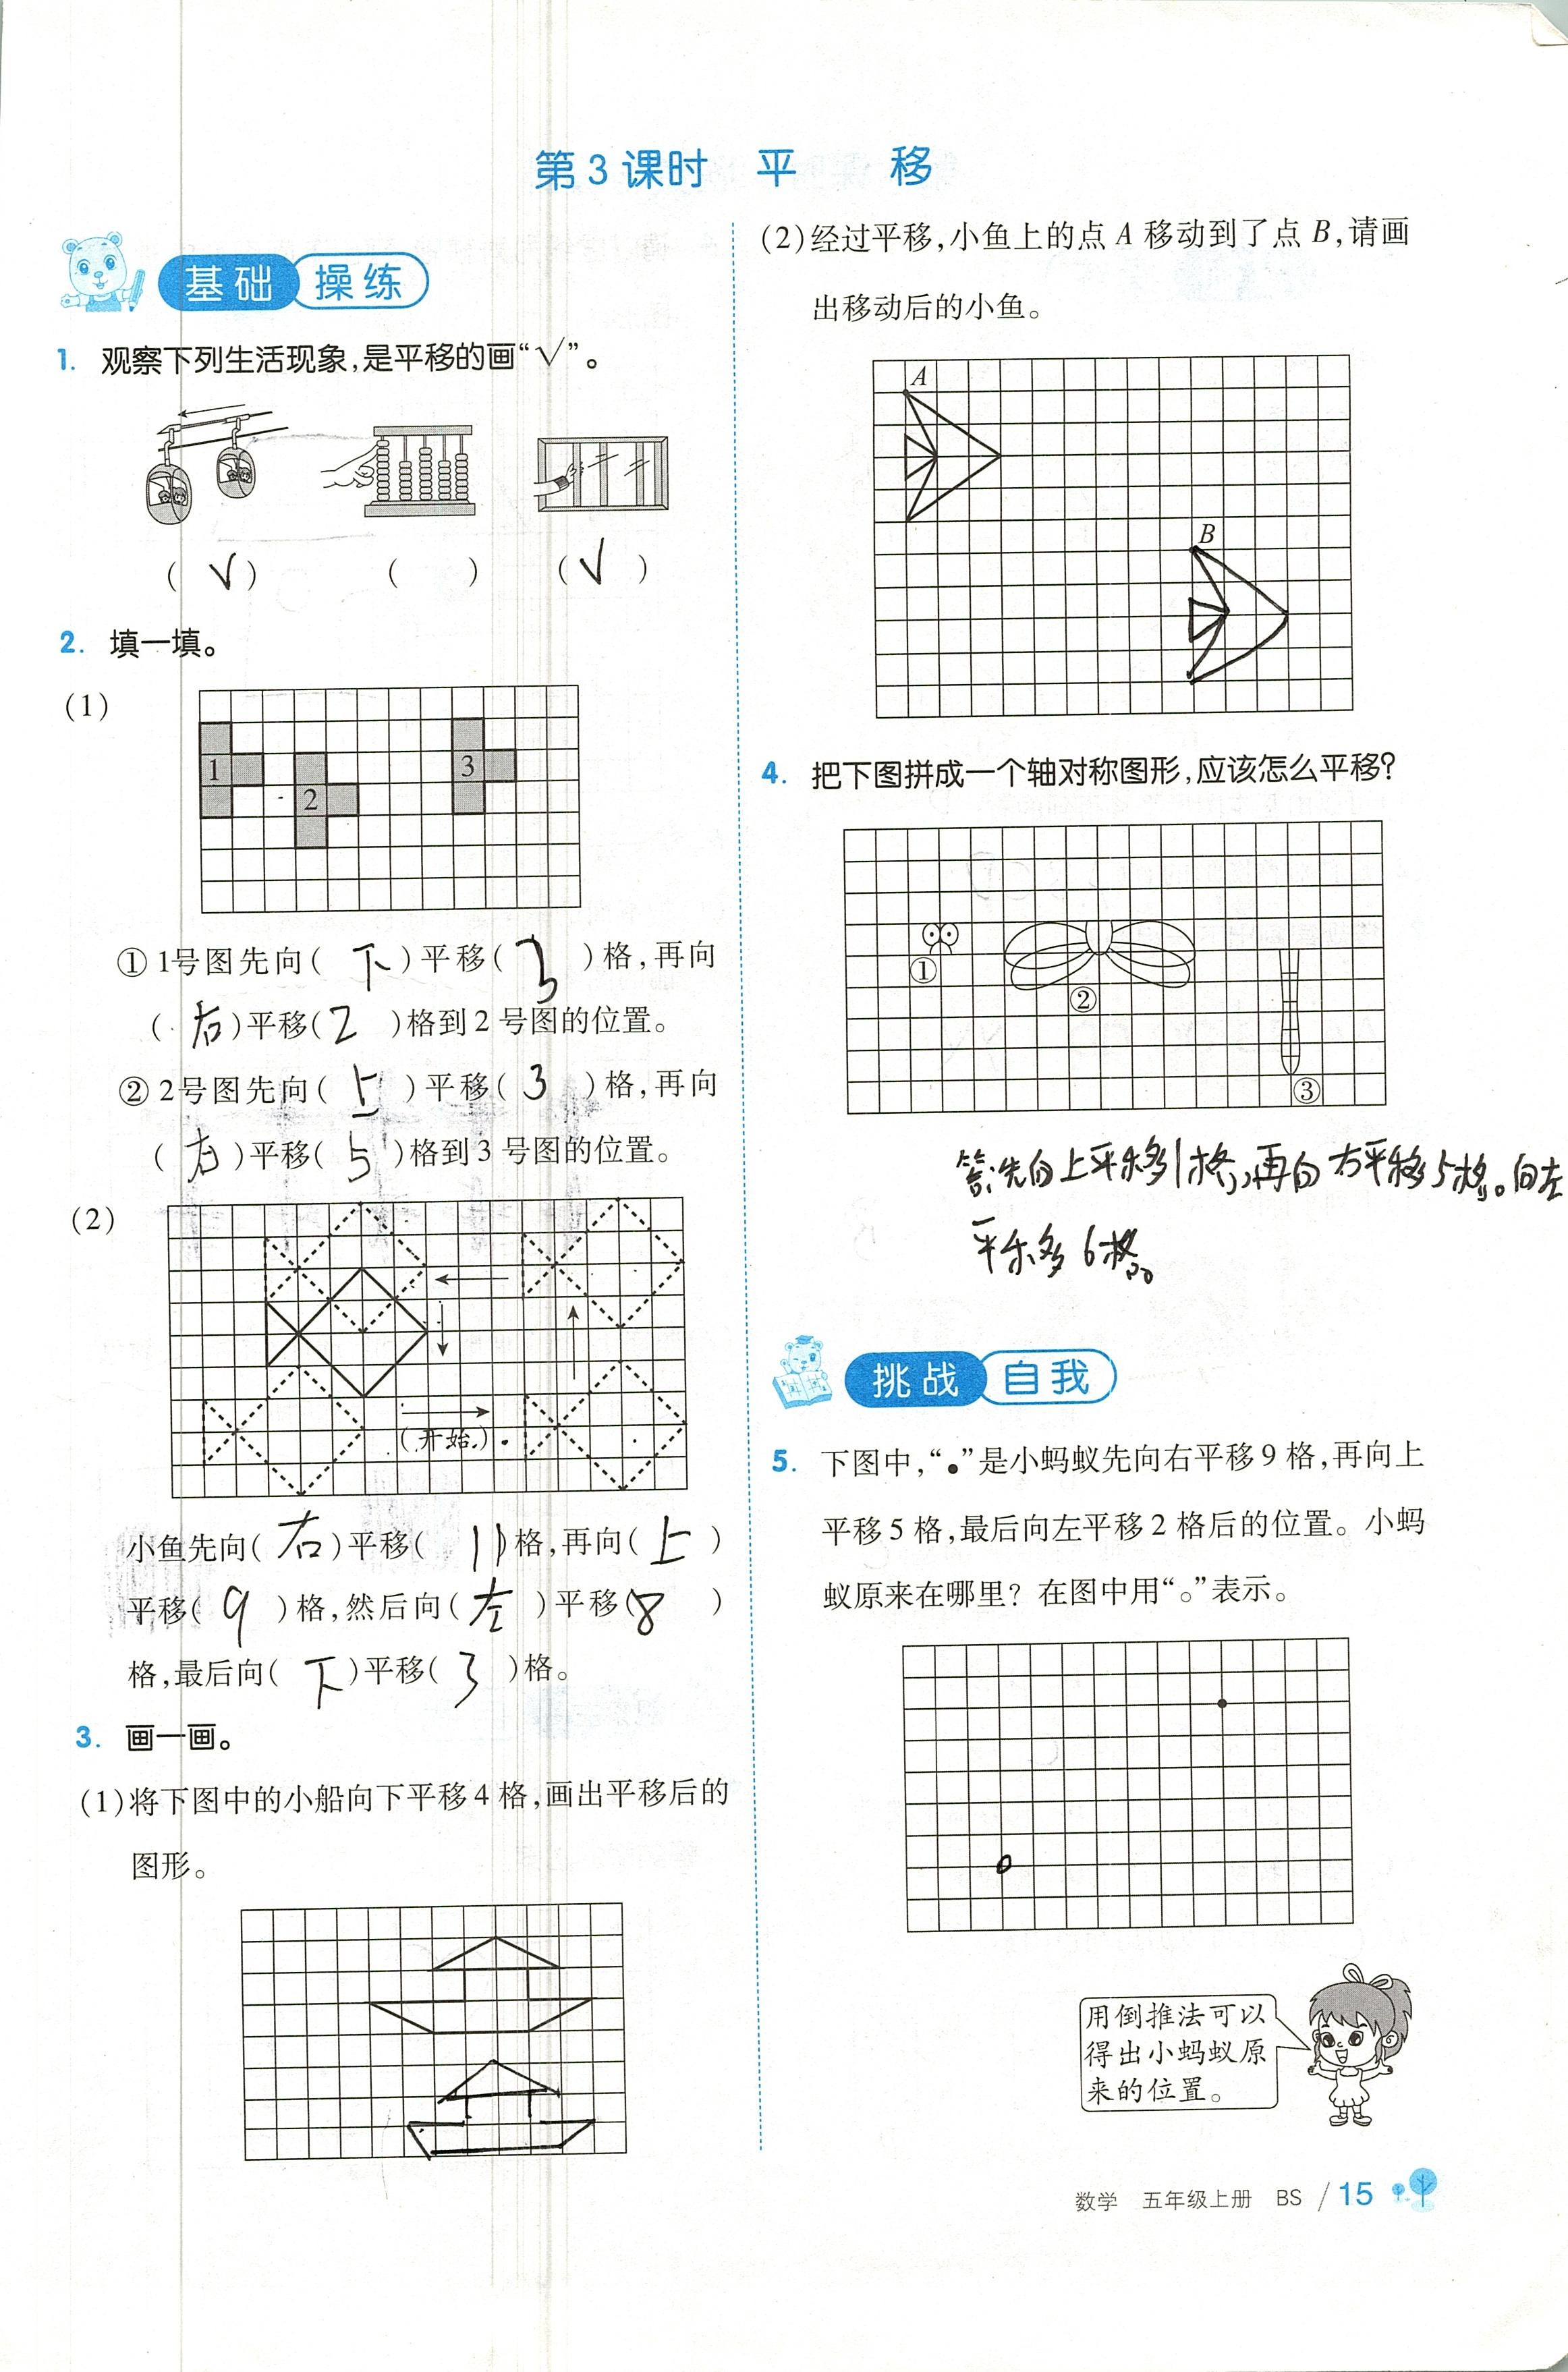 第3课时 平 移
基础 操练
1. 观察下列生活现象,是平移的画“√”。
( √ ) ( ) ( √ )
2. 填一填。
(1)
1
2
3
①1号图先向( 下 )平移( 3 )格,再向
( 右 )平移( 2 )格到2号图的位置。
②2号图先向( 上 )平移( 3 )格,再向
( 右 )平移( 5 )格到3号图的位置。
(2)
(开始)
小鱼先向( 右 )平移( 11 )格,再向( 上 )
平移( 9 )格,然后向( 左 )平移( 8 )
格,最后向( 下 )平移( 3 )格。
3. 画一画。
(1)将下图中的小船向下平移4格,画出平移后的
图形。
(2)经过平移,小鱼上的点A移动到了点B,请画
出移动后的小鱼。
A
B
4. 把下图拼成一个轴对称图形,应该怎么平移?
①
②
③
答:先向上平移1格,再向右平移5格。向左
平移6格。
挑战 自我
5. 下图中,“•”是小蚂蚁先向右平移9格,再向上
平移5格,最后向左平移2格后的位置。小蚂
蚁原来在哪里?在图中用“○”表示。
用倒推法可以
得出小蚂蚁原
来的位置。
数学 五年级上册 BS / 15